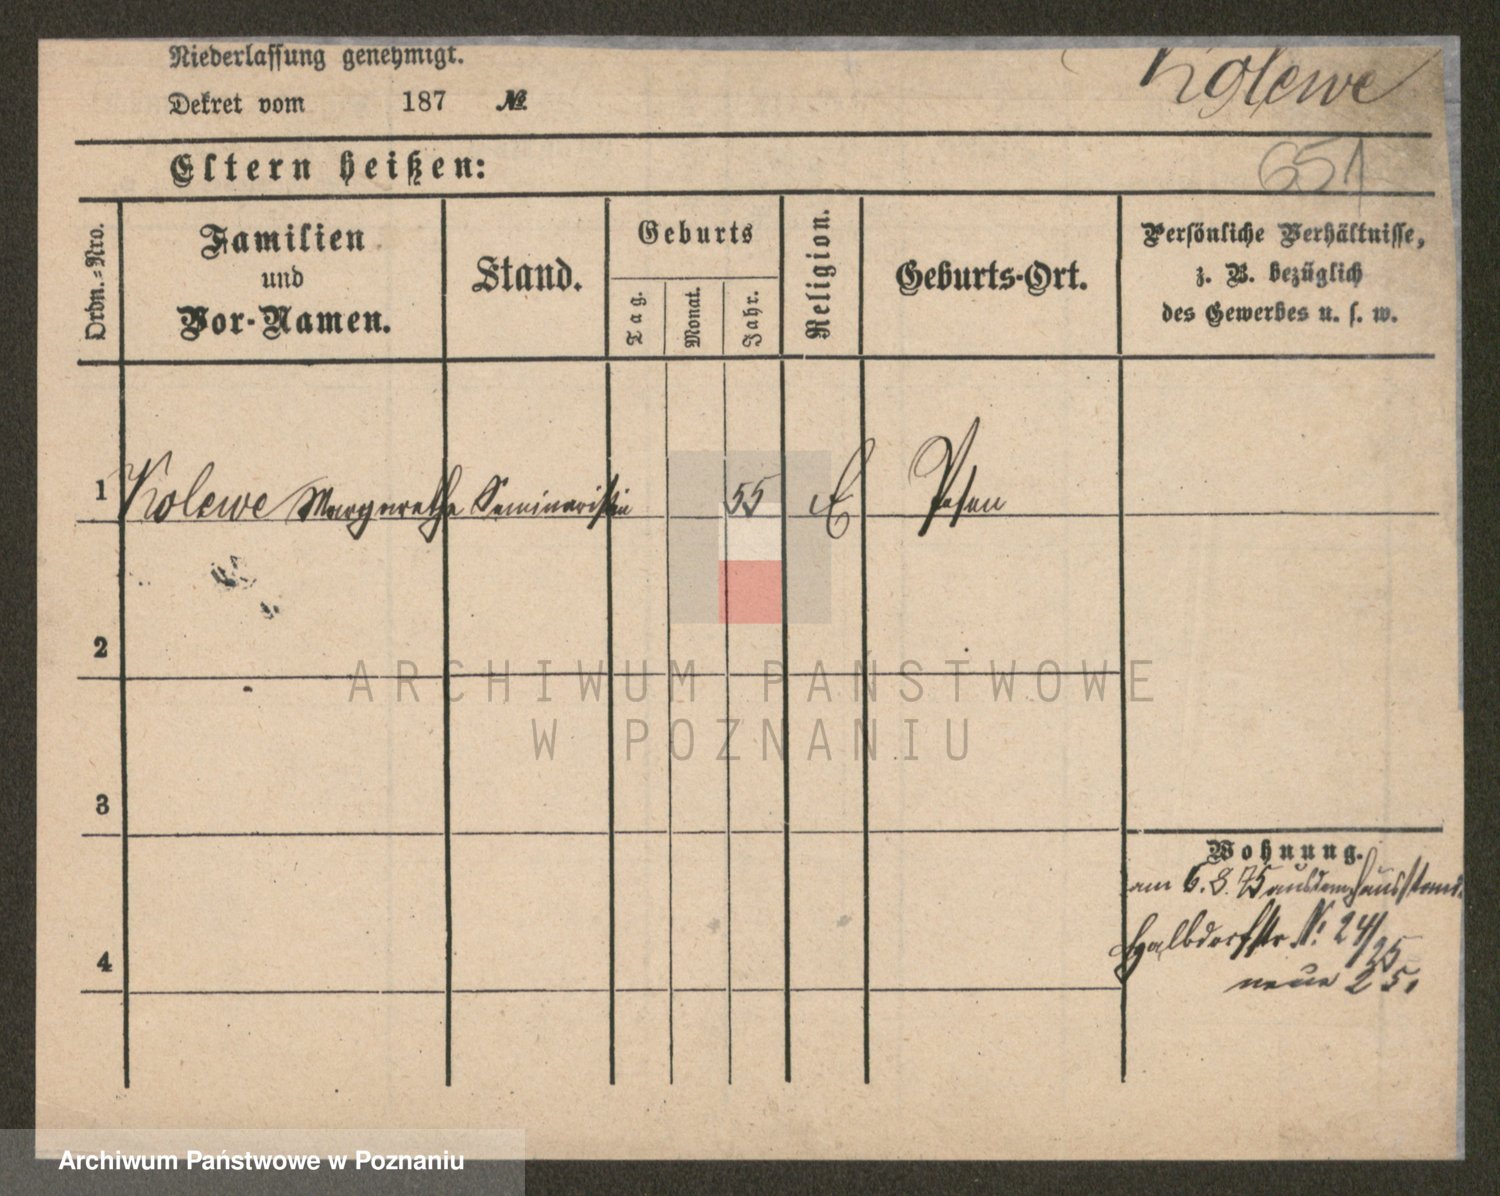 Niederlassung genehmigt.
Kolewe
Dekret vom 187 №
651
Eltern heißen:
Ordn.=Nro.
Familien
und
Vor-Namen.
Stand.
Geburts
Tag.
Monat.
Jahr.
Religion.
Geburts-Ort.
Persönliche Verhältnisse,
z. B. bezüglich
des Gewerbes u. s. w.
1 Kolewe Margarethe Seminaristin 55 E Posen
2
ARCHIWUM PAŃSTWOWE
W POZNANIU
3
Wohnung.
am 6.8.75 aus dem Hausstand
Halbdorfstr N. 24/25
4
neue 25.
Archiwum Państwowe w Poznaniu